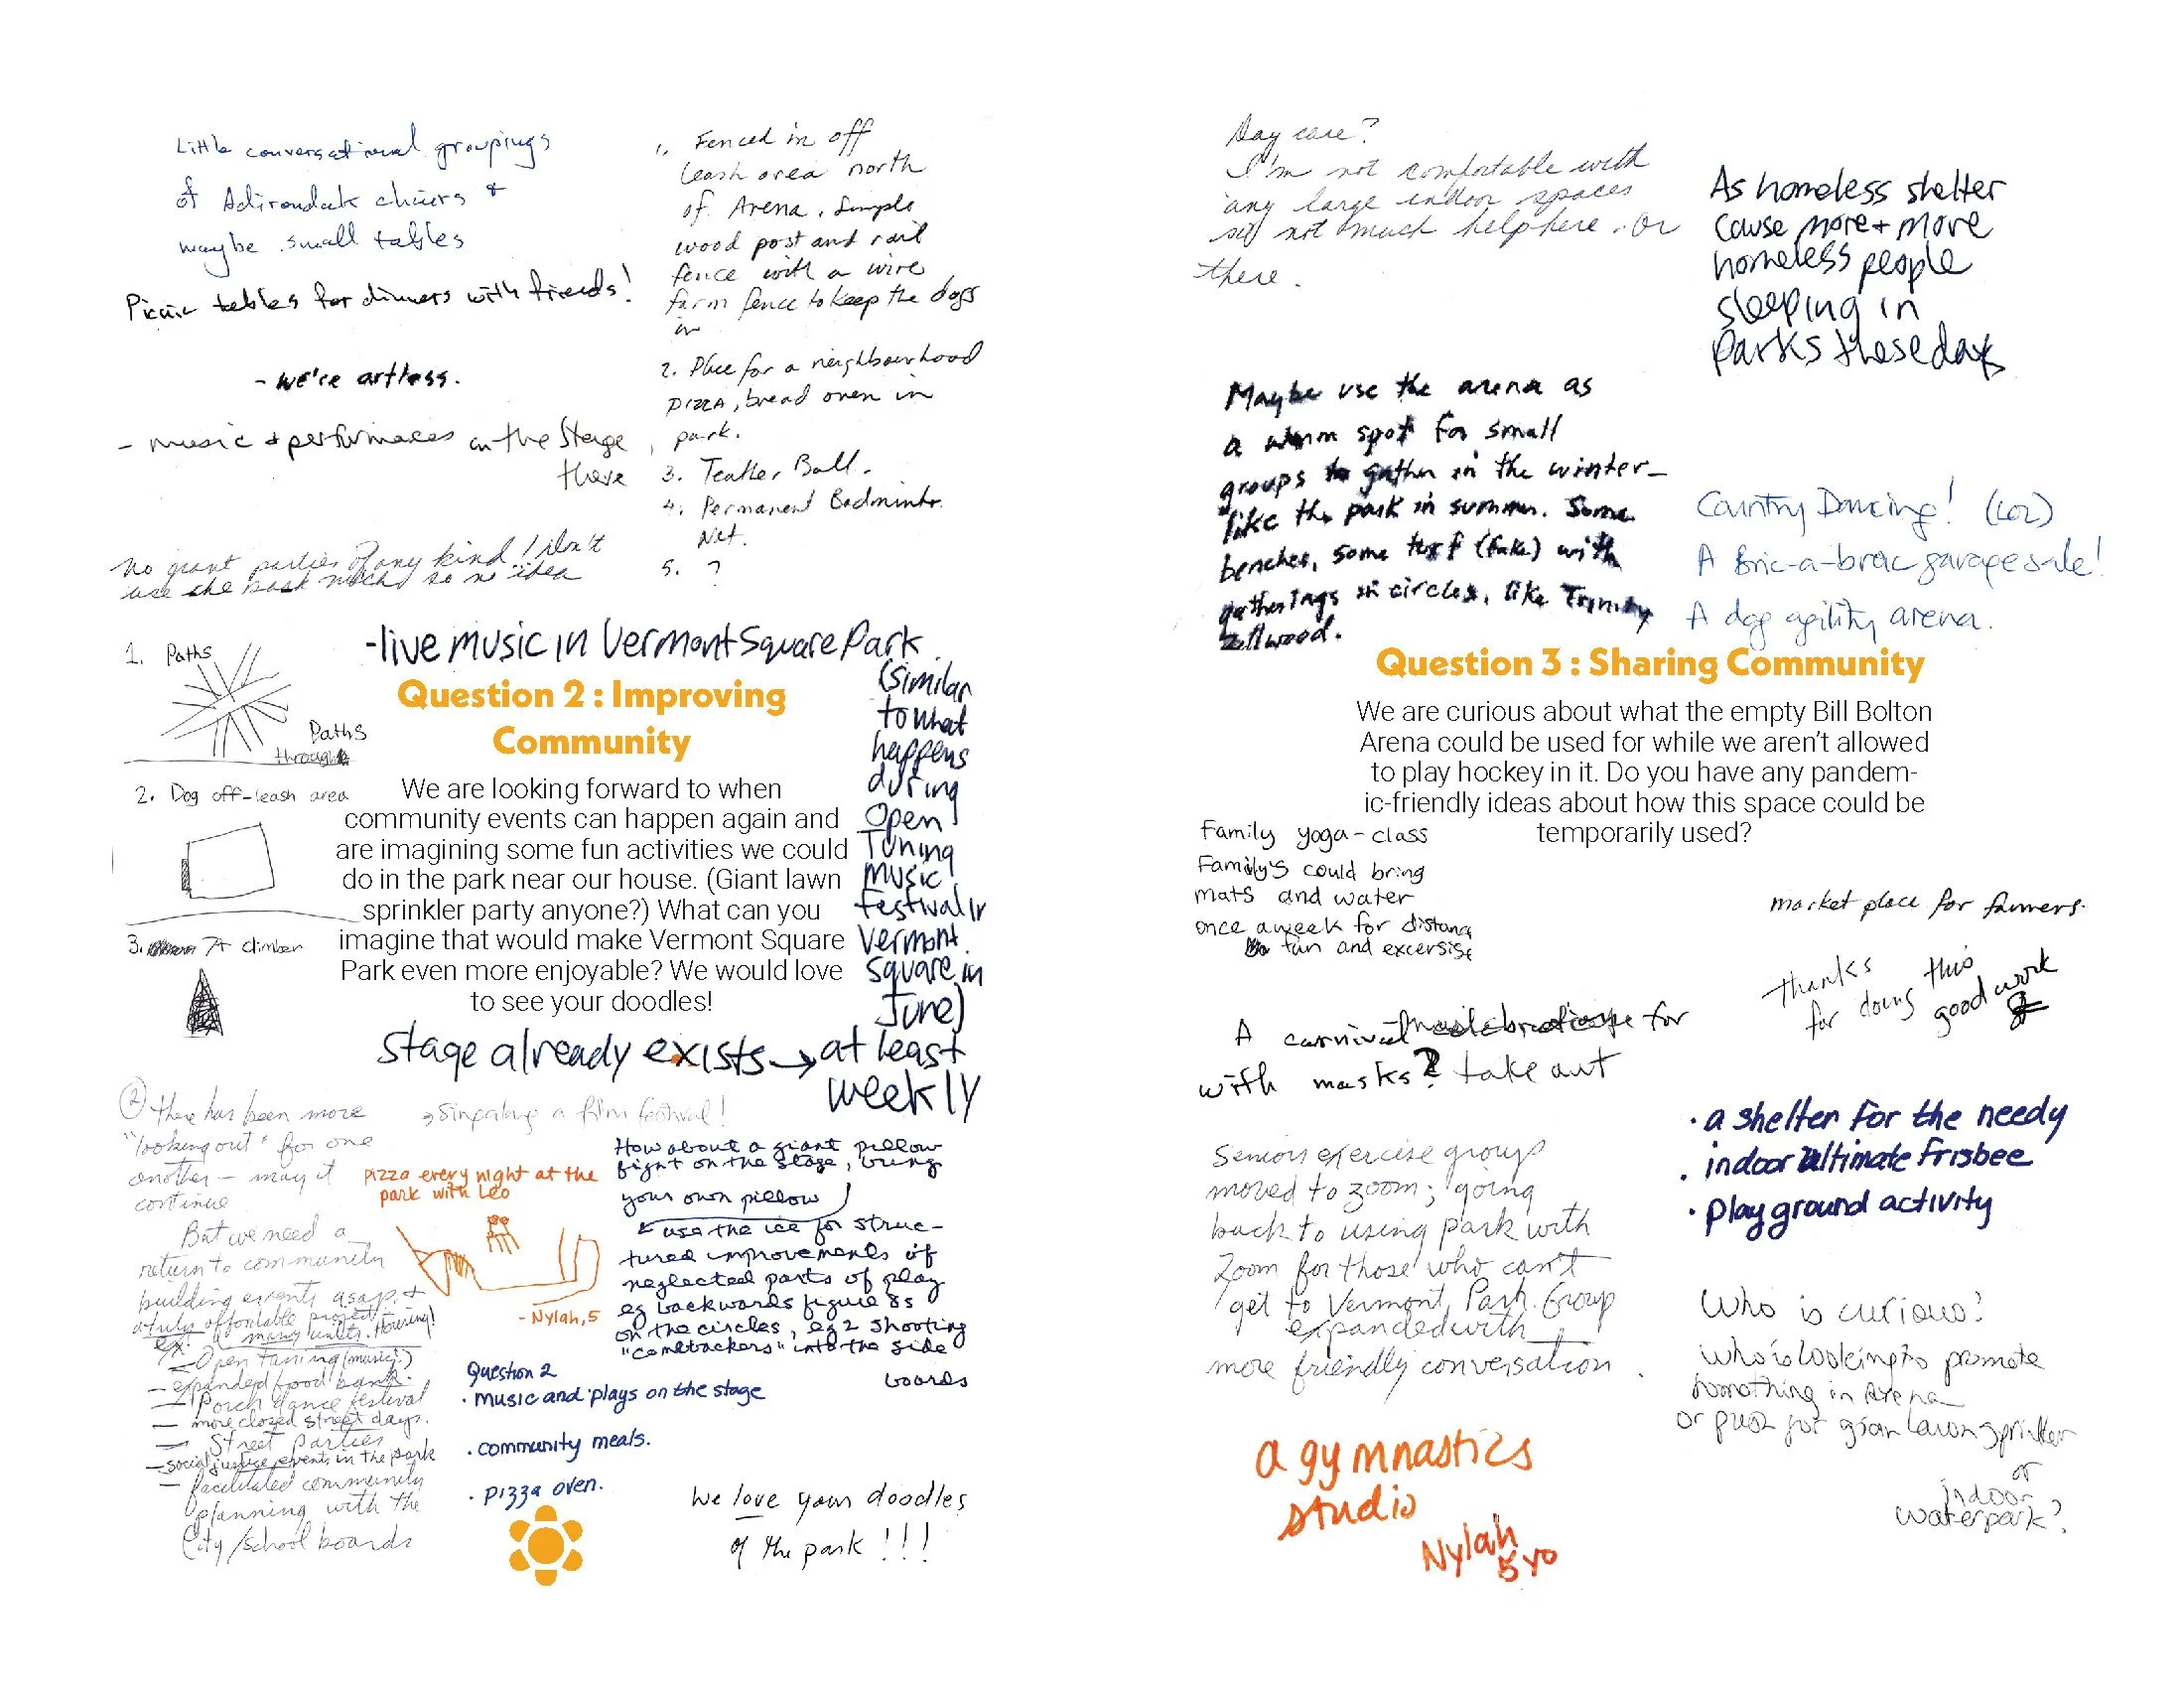 Little conversational groupings
of Adirondak chairs +
maybe small tables
Picnic tables for dinners with friends!
- we're artless.
- music + performaces on the stage
there
No giant parties of any kind! Don't
use the park much so no idea
1. Fenced in off
leash area north
of Arena. Simple
wood post and rail
fence with a wire
farm fence to keep the dogs
in
2. Place for a neighbourhood
pizza, bread oven in
park.
3. Teather Ball.
4. Permanent Badminton
Net.
5. ?
1. Paths
Paths
through
2. Dog off-leash area
3. 7A climber
-live music in Vermont Square Park
(similar
to what
happens
during
Open
Tuning
Music
Festival in
Vermont
Square in
June)
Question 2 : Improving
Community
We are looking forward to when
community events can happen again and
are imagining some fun activities we could
do in the park near our house. (Giant lawn
sprinkler party anyone?) What can you
imagine that would make Vermont Square
Park even more enjoyable? We would love
to see your doodles!
Stage already exists → at least
weekly
② there has been more
"looking out" for one
another - may it
continue
But we need a
return to community
building events asap +
a truly affordable project
many units. Housing!
ex.
- Open Tuning (music!)
- expanded food bank.
- Porch dance festival
- more closed street days.
- Street Parties
- social justice events in the park
- facilitated community
planning with the
City/school boards
a film festival!
pizza every night at the
park with Leo
- Nylah, 5
How about a giant pillow
fight on the stage, bring
your own pillow
use the ice for struc-
tured improvements of
neglected parts of play
eg backwards figure 8s
on the circles, eg 2 shooting
"comebackers" into the side
boards
Question 2
• music and plays on the stage
• community meals.
• pizza oven.
We love your doodles
of the park!!!
Day care?
I'm not comfortable with
any large indoor spaces
so not much help here. or
there.
As homeless shelter
cause more + more
homeless people
sleeping in
parks these days
Maybe use the arena as
a warm spot for small
groups to gather in the winter-
like the park in summer. Some
benches, some turf (fake) with
gatherings in circles, like Trinity
Bellwood.
Country Dancing! (LOL)
A bric-a-brac garage sale!
A dog agility arena.
Question 3 : Sharing Community
We are curious about what the empty Bill Bolton
Arena could be used for while we aren't allowed
to play hockey in it. Do you have any pandem-
ic-friendly ideas about how this space could be
temporarily used?
Family yoga-class
Family's could bring
mats and water
once a week for distance
fun and excersise
market place for farmers.
Thanks
for doing this
good work
A carnival for
with masks? take out
• a shelter for the needy
• indoor Ultimate Frisbee
• playground activity
Seniors exercise group
moved to zoom; going
back to using park with
Zoom for those who can't
get to Vermont Park. Group
expanded with
more friendly conversation.
Who is curious?
who is looking to promote
something in Arena
or push for giant lawn sprinkler
or
indoor
waterpark?
a gymnastics
studio
Nylah
5 yo